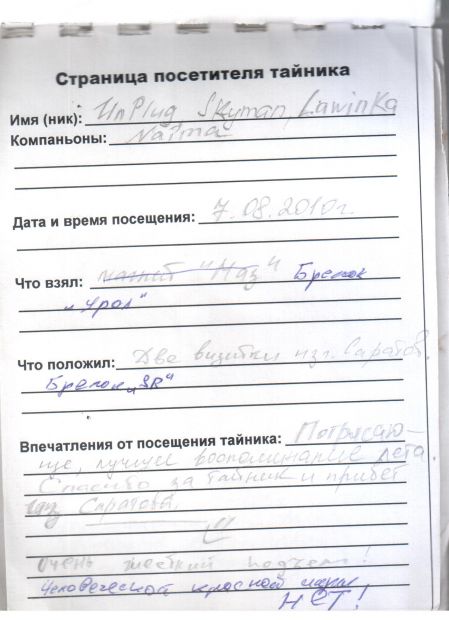 Страница посетителя тайника
Имя (ник): UnPlug, Skyman, Lawinka
Компаньоны: Naima
Дата и время посещения: 7.08.2010г.
Что взял: магнит Брелок
"Урал"
Что положил: Две визитки из г. Саратов.
Брелок "SR"
Впечатления от посещения тайника: Потрясаю-
ще, лучшее воспоминание лета.
Спасибо за тайник и привет
из Саратова.
очень жесткий подъем!
Человеческой красной икры
НЕТ!